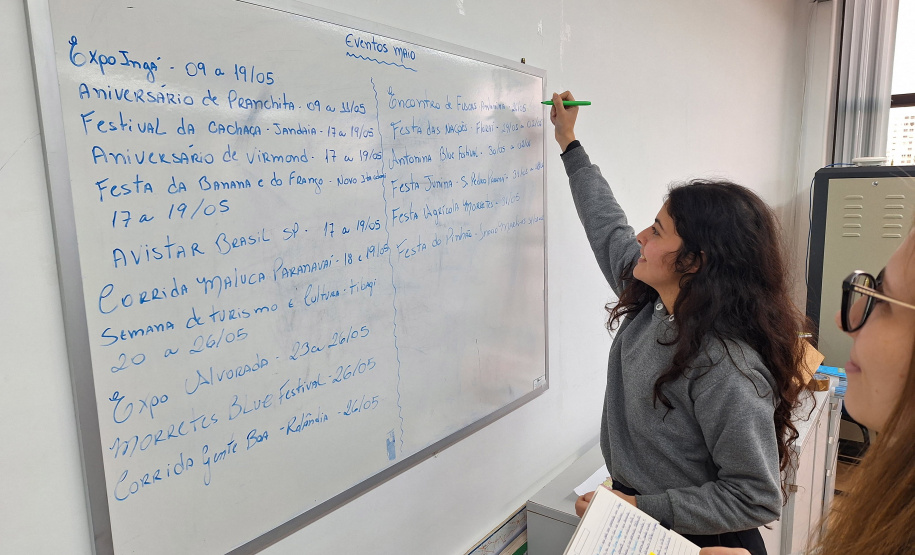 Eventos maio
Expo Ingá - 09 a 19/05
Aniversário de Pranchita - 09 a 11/05
Festival da cachaça - Jandaia - 17 a 19/05
Aniversário de Virmond - 17 a 19/05
Festa da Banana e do Frango - Novo Itacolomi
17 a 19/05
Avistar Brasil SP - 17 a 19/05
Corrida Maluca Paranavaí - 18 e 19/05
Semana de turismo e Cultura - Tibagi
20 a 26/05
Expo Alvorada - 23 a 26/05
Morretes Blue Festival - 26/05
Corrida Gente Boa - Rolândia - 26/05
Encontro de Fuscas
Festa das Nações - Floraí -
Antonina Blue Festival - 30/05 a
Festa Junina - S. Pedro
Festa Agrícola Morretes -
Festa do Pinhão -